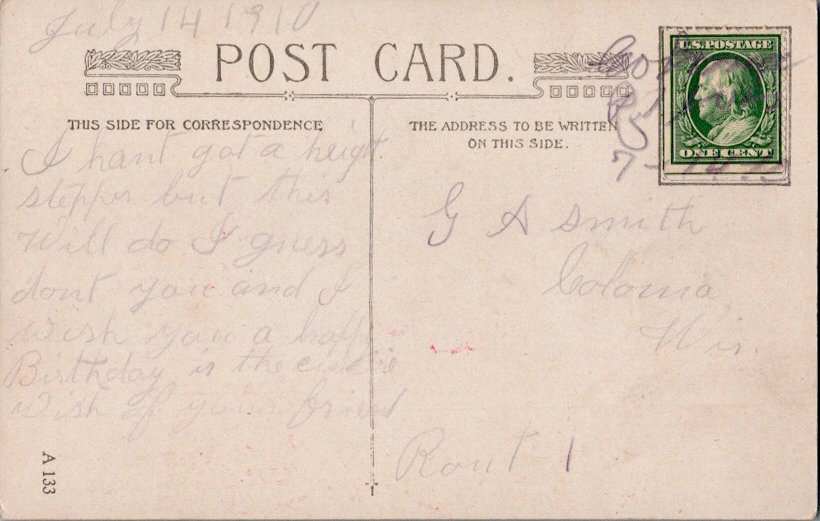 July 14 1910
POST CARD.
THIS SIDE FOR CORRESPONDENCE
THE ADDRESS TO BE WRITTEN
ON THIS SIDE.
U.S. POSTAGE
ONE CENT
7-14-10
I hant got a heigh
stepper but this
Will do I guess
dont you and I
Wish you a happy
Birthday is the entire
Wish of your friend
G A Smith
Coloma
Wis.
Rout 1
A 133